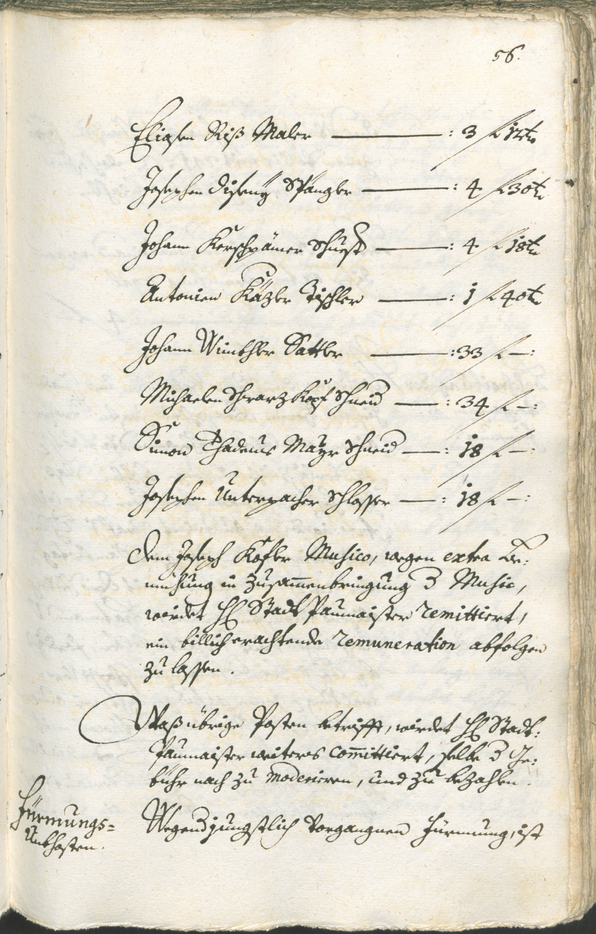 56.
Eliasen Riß Maler — : 3 f 12 kr
Josephen Diseng Spängler — : 4 f 30 kr
Johann Kerschpämer Schuest — : 4 f 18 kr
Antonien Käzler Tischler — : 1 f 40 kr
Johann Winthler Sattler — : 33 f — :
Michaelen Schwarzkopf Schneid — : 34 f — :
Simon Thadeus Mayr Schneid — : 18 f — :
Josephen Unterpacher Schlosser — : 18 f — :
Dem Joseph Kofler Musico, wegen extra Be:
miehung in Zusammenbringung d Music,
würdet H Stadt Paumaister remittiert,
ein billich erachtende remuneration abfolgen
zu lassen.
Waß übrige Posten betrifft, würdet H Stadt:
Paumaister weiters committiert, selbe d Ge:
bühr nach zu moderieren, und zu bezahlen.
Fürmungs=
Unkhosten.
Wegen jüngstlich vorgangnen Fürmung, ist